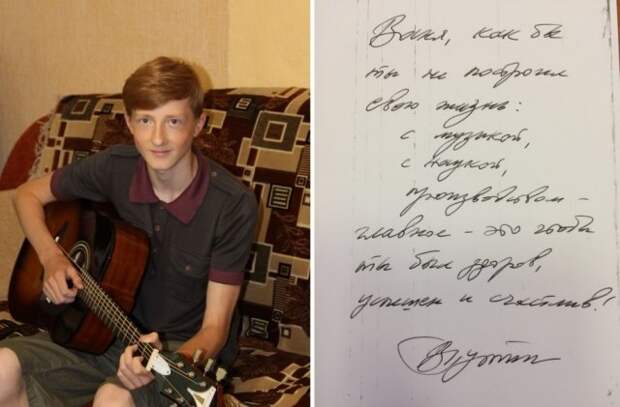 Ваня, как бы
ты не построил
свою жизнь:
с музыкой,
с наукой,
производством -
главное - это чтобы
ты был здоров,
успешен и счастлив!
ВПутин